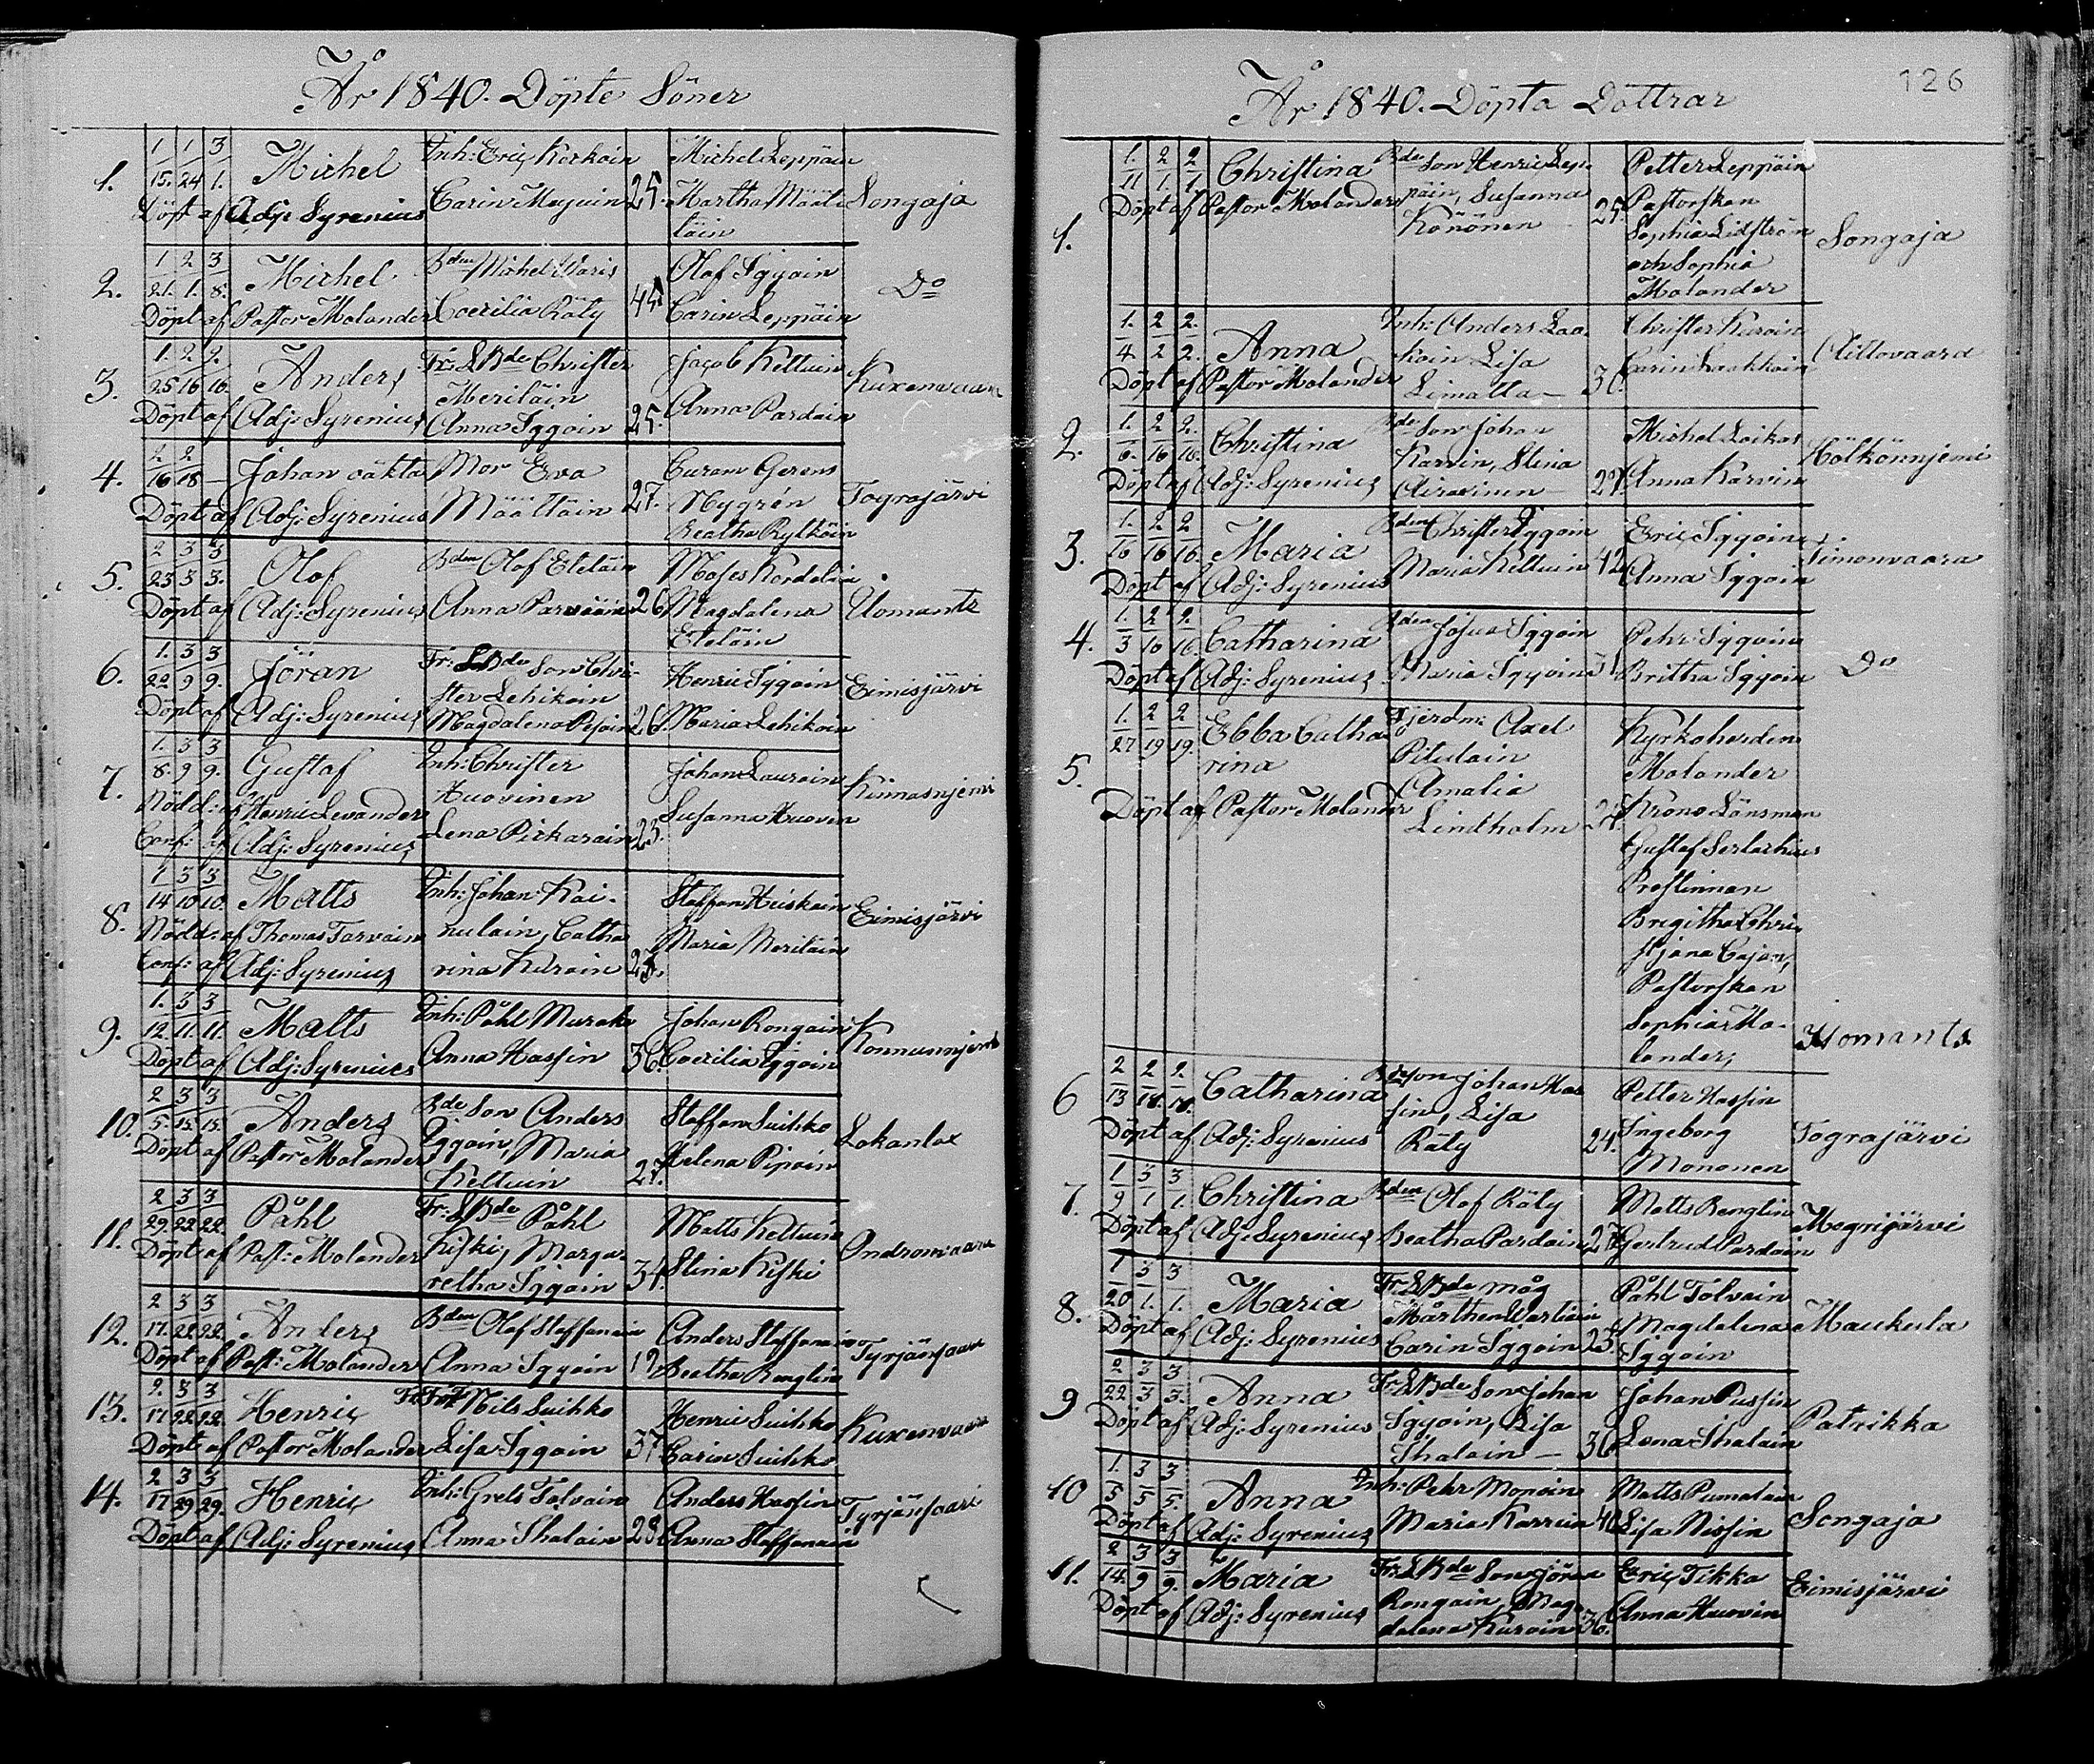 År 1840. Döpte Söner
1 1 3 Inh: Eric Kerkoin Michel Leppäin
1. 15. 24 1. Michel Carin Mujuin 25. Martha Määt Songaja
Döpt af Adj: Syrenius täin
1 2 3 Bden Michel Waris Olof Iggoin
2. 21. 1. 8. Michel Coecilia Räty 45 Carin Leppäin Do
Döpt af Pastor Molander
1. 2 2. Fr: LBde Christer Jacob Keltuin
3. 25 16 16. Anders Meriläin Kuxenvaara
Döpt af Adj: Syrenius Anna Iggoin 25. Anna Pardain
2 2 Mor Eva
4. 16 18 – Johan oäkta Määttäin 27. Nygrén Tograjärvi
Döpt af Adj: Syrenius Beatha Rytköin
2 3 3 Bden Olof Eteläin Moses Kordelin
5. 23 3 3. Olof Anna Parviäin 26 Magdalena Ilomants
Döpt af Adj: Syrenius Eteläin
1. 3 3 Fr: LBde Son Chri-
6. 22 9 9. Jöran ster Lehikoin Henric Iggoin Eimisjärvi
Döpt af Adj: Syrenius Magdalena Pesoin 26. Maria Lehikoin
1. 3 3 Inh: Christer Johan Laurain
7. 8. 9 9. Gustaf Huovinen Kinnasnjemi
Nödd: af Henric Levander Lena Pirkarain 23. Susanna Huovin
Conf: af Adj: Syrenius
1 3 3 Inh: Johan Kai-
8. 14 10 10. Matts nulain, Catha Staffan Heiskain Eimisjärvi
Nödd: af Thomas Tarvain rina Kuroin Maria Meriläin
Conf: af Adj: Syrenius
1. 3 3 Inh: Påhl Murake Johan Rongain
9. 12. 11. 11. Matts Anna Hassin 36 Coecilia Iggoin Konnunnjemi
Döpt af Adj: Syrenius
2 3 3 Bde Son Anders Staffan Suihko
10. 5. 15. 15. Anders Iggoin, Maria Lokanlax
Döpt af Pastor Molander Keltuin 27. Helena Pipoin
2 3 3 Fr: LBde Påhl Matts Keltuin
11. 29. 22 22. Påhl Kiski, Marga- Ondronvaara
Döpt af Past: Molander retha Iggoin 34. Stina Kiski
2 3 3 Bden Olof Staffanain Anders Staffanain
12. 17. 22. 22. Anders Anna Iggoin 19 Beatha Renglin Tyrjänsaari
Döpt af Past: Molander
2. 3 3 Nils Suihko Henric Suihko
13. 17. 22. 22. Henric Lisa Iggoin 37 Carin Suihko Kuxenvaara
Döpt af Pastor Molander
2 3 3 Inh: Grels Tolvain Anders Hassin
14. 17 29 29. Henric Anna Ihalain 28 Anna Staffanain Tyrjänsaari
Döpt af Adj: Syrenius
126
År 1840. Döpta Döttrar
1. 2 2. Christina Bde Son Henric Lep- Petter Leppäin
11 1. 1. päin, Susanna Pastorskan
Döpt af Pastor Molander Könönen 25. Sophia Lidström
1. och Sophia Songaja
Molander
1. 2 2. Inh: Anders Laa- Christer Kuroin
4. 2 2. Anna koin Lisa Carin Laakkoin Aittovaara
Döpt af Pastor Molander Limatta – 30.
1. 2 2. Bde Son Johan Michel Loikas
2. 6. 16 16. Christina Karvin, Stina Hölkönnjemi
Döpt af Adj: Syrenius Airaxinen – Anna Karvin
1. 2 2 Bden Christer Iggoin Eric Iggoin
3. 16 16 16. Maria Maria Keltuin 42 Anna Iggoin Simonvaara
Döpt af Adj: Syrenius
1. 2 2. Bden Josua Iggoin Pehr Iggoin
4. 3 16 16. Catharina Maria Iggoin 31. Britha Iggoin Do
Döpt af Adj: Syrenius
1. 2 2 Ebba Catha Fjerdm: Axel Kyrkoherden
27 19 19. rina Pitulain Molander
5. Amalia Krono Länsman
Döpt af Pastor Molander Lindholm Gustaf Serlachius
Prostinnan
Brigitha Chri-
stjana Cajan,
Pastorskan
Sophia Mo-
lander, Ilomants
2 2 2. Bdeson Johan Has Petter Hassin
6 13 18. 18. Catharina sin, Lisa Ingeborg Tograjärvi
Döpt af Adj: Syrenius Räty 24. Mononen
1 3 3 Bden Olof Räty Matts Renglin
7. 9 1 1. Christina Beatha Pardain 27 Gertrud Pardain Megrijärvi
Döpt af Adj: Syrenius
1 3 3 Fr: LBde måg Påhl Tolvain
8. 20 1. 1. Maria Mårthen Wartiain Magdalena Maukula
Döpt af Adj: Syrenius Carin Iggoin 23. Iggoin
2 3 3 Fr: LBde Son Johan Johan Pussin
9 22 3 3. Anna Iggoin, Lisa Patrikka
Döpt af Adj: Syrenius Ihalain – 30 Lena Ihalain
1. 3 3 Inh: Pehr Mononin Matts Pumalain
10 5 5 5. Anna Maria Karvin 40 Lisa Nissin Songaja
Döpt af Adj: Syrenius
2 3 3 Fr: LBde Son Jöran Eric Tikka
11. 14. 9 9. Maria Rongain, Mag- Eimisjärvi
Döpt af Adj: Syrenius dalena Kuroin 30. Anna Huovin